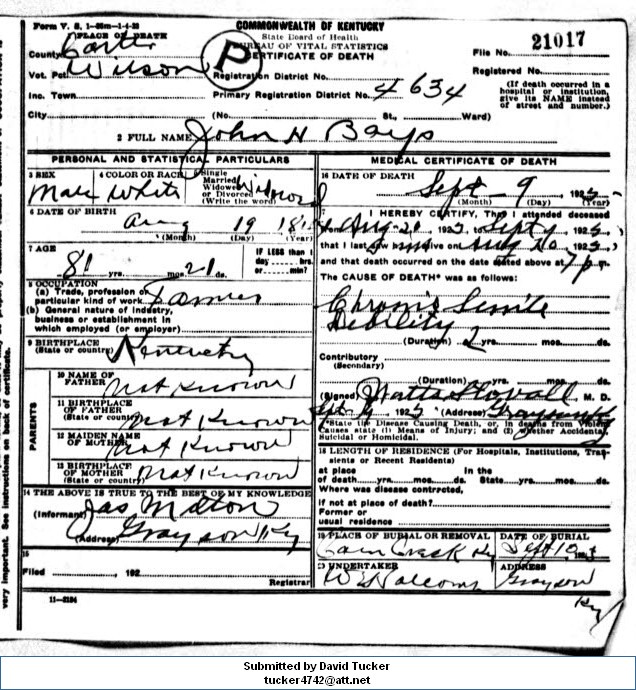 Form V. S. 1-35m-1-4-22
COMMONWEALTH OF KENTUCKY
PLACE OF DEATH
State Board of Health
BUREAU OF VITAL STATISTICS
CERTIFICATE OF DEATH
File No. 21017
County Carter
Vot. Pct. Wilson
P
Registration District No.
Registered No.
Inc. Town
Primary Registration District No. 4634
(If death occurred in a hospital or institution, give its NAME instead of street and number.)
City (No. St., Ward)
2 FULL NAME John H Bays
PERSONAL AND STATISTICAL PARTICULARS
3 SEX
Male
4 COLOR OR RACE
White
5 Single
Married
Widowed
or Divorced
(Write the word)
6 DATE OF BIRTH
Aug 19
(Month) (Day) (Year)
7 AGE
81 yrs. mos. 21 ds.
IF LESS than 1
day hrs.
or min?
8 OCCUPATION
(a) Trade, profession or
particular kind of work Farmer
(b) General nature of industry,
business or establishment in
which employed (or employer)
9 BIRTHPLACE
(State or country) Kentucky
PARENTS
10 NAME OF
FATHER Not Known
11 BIRTHPLACE
OF FATHER
(State or country) Not Known
12 MAIDEN NAME
OF MOTHER Not Known
13 BIRTHPLACE
OF MOTHER
(State or country) Not Known
14 THE ABOVE IS TRUE TO THE BEST OF MY KNOWLEDGE
(Informant) Jas Melton
(Address) Grayson Ky
15
Filed 192
Registrar
11-2184
MEDICAL CERTIFICATE OF DEATH
16 DATE OF DEATH
Sept 9 1923
(Month) (Day) (Year)
I HEREBY CERTIFY, That I attended deceased
from Aug 20 1923 to Sept 1923
that I last saw him alive on Aug 20 1923
and that death occurred on the date stated above at 7 p m.
The CAUSE OF DEATH* was as follows:
Chronic Senile
Debility
(Duration) 2 yrs. mos. ds.
Contributory
(Secondary)
(Duration) yrs. mos. ds.
(Signed) Watts Stovall M. D.
Sept 1923 (Address) Grayson Ky
*State the Disease Causing Death, or, in deaths from Violent
Causes state (1) Means of Injury; and (2) whether Accidental,
Suicidal or Homicidal.
18 LENGTH OF RESIDENCE (For Hospitals, Institutions, Transients or Recent Residents)
at place In the
of death yrs. mos. ds. State yrs. mos. ds.
Where was disease contracted,
if not at place of death?
Former or
usual residence
19 PLACE OF BURIAL OR REMOVAL
Creek Ky
DATE OF BURIAL
Sept 10
20 UNDERTAKER
ADDRESS
Grayson
Ky
very important. See instructions on back of certificate.
Submitted by David Tucker
tucker4742@att.net